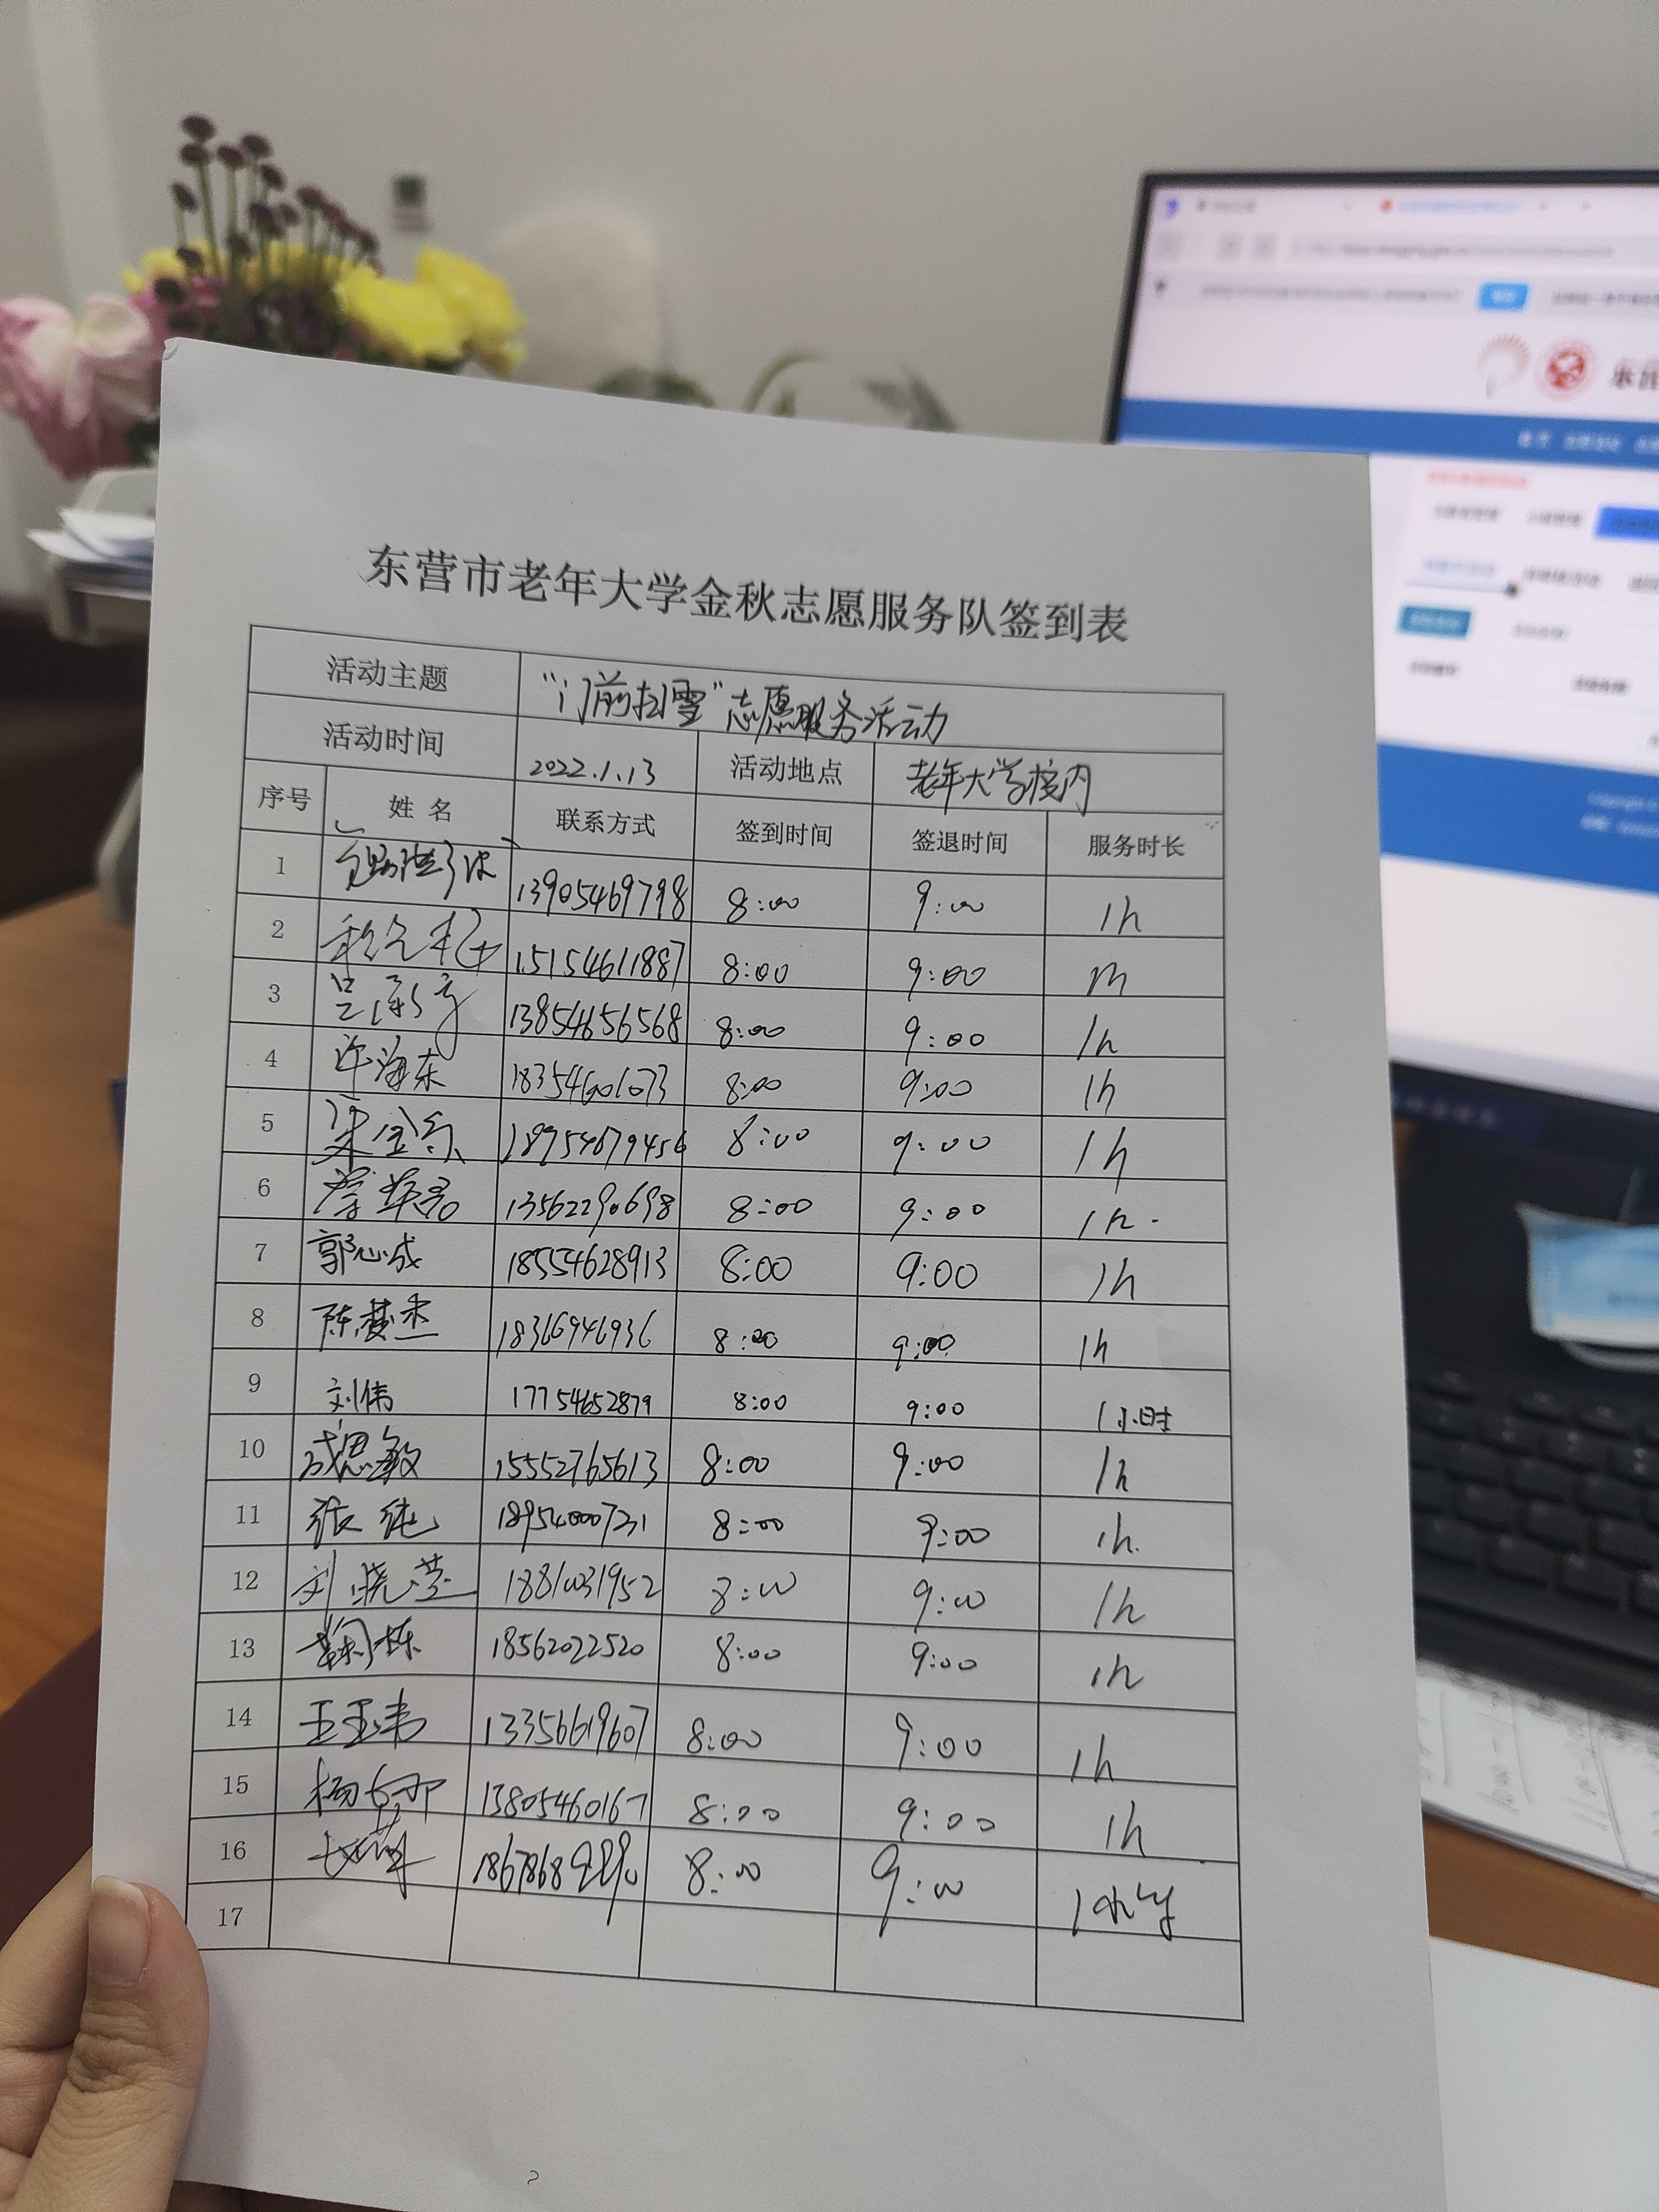 东营市老年大学金秋志愿服务队签到表
活动主题 “门前扫雪”志愿服务活动
活动时间 2022.1.13 活动地点 老年大学校内
序号 姓名 联系方式 签到时间 签退时间 服务时长
1 13905469798 8:00 9:00 1h
2 15154611887 8:00 9:00 1h
3 13854656568 8:00 9:00 1h
4 许海东 18354601073 8:00 9:00 1h
5 18954679456 8:00 9:00 1h
6 13562290698 8:00 9:00 1h.
7 郭心成 18554628913 8:00 9:00 1h
8 陈梦杰 18366946936 8:00 9:00 1h
9 刘伟 17754652879 8:00 9:00 1小时
10 成思敏 15552765613 8:00 9:00 1h
11 张纯 18954000731 8:00 9:00 1h.
12 刘晓莹 18810031952 8:00 9:00 1h
13 鞠栋 18562022520 8:00 9:00 1h
14 王玉韦 13356619607 8:00 9:00 1h
15 杨 13805460167 8:00 9:00 1h
16 8:00 9:00 1小时
17